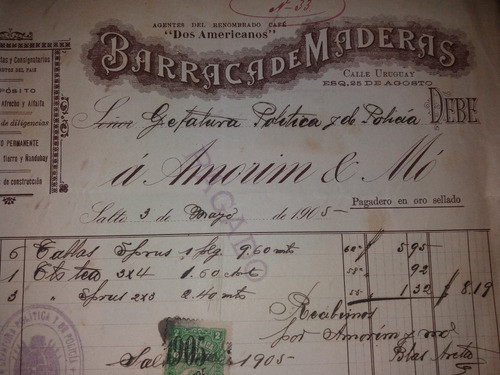 Nº 33
AGENTES DEL RENOMBRADO CAFÉ
"Dos Americanos"
BARRACA DE MADERAS
CALLE URUGUAY
ESQ. 25 DE AGOSTO
y Consignatarios
DEL PAIS
Afrecho y Alfalfa
de diligencias
PERMANENTE
fierro y Ñandubay
de construcción
DEBE
Señor Gefatura Politica y de Policía
á Amorim & Mó
PAGADO
Pagadero en oro sellado
Salto 3 de Mayo de 1905
6 Tablas Sprus 1 plg 9.60 mts 5.95
1 Cts tea 3x4 1.60 92
3 " Sprus 2x3 2.40 mts 1.32 $ 8.19
Recibimos
por Amorim y
POLITICA Y DE POLICIA
Salto 1905
1905
Blas